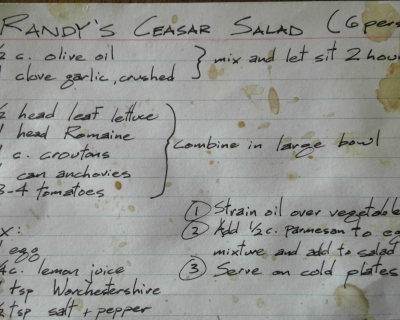 RANDY'S CEASAR SALAD (6 pers
½ c. olive oil
1 clove garlic, crushed
mix and let sit 2 hou
½ head leaf lettuce
1 head Romaine
1 c. croutons
1 can anchovies
3-4 tomatoes
Combine in large bowl
x:
1 egg
¼c. lemon juice
1 tsp Worchestershire
½ tsp salt + pepper
① Strain oil over vegetable
② Add ½ c. parmeson to eg
mixture and add to salad
③ Serve on cold plates